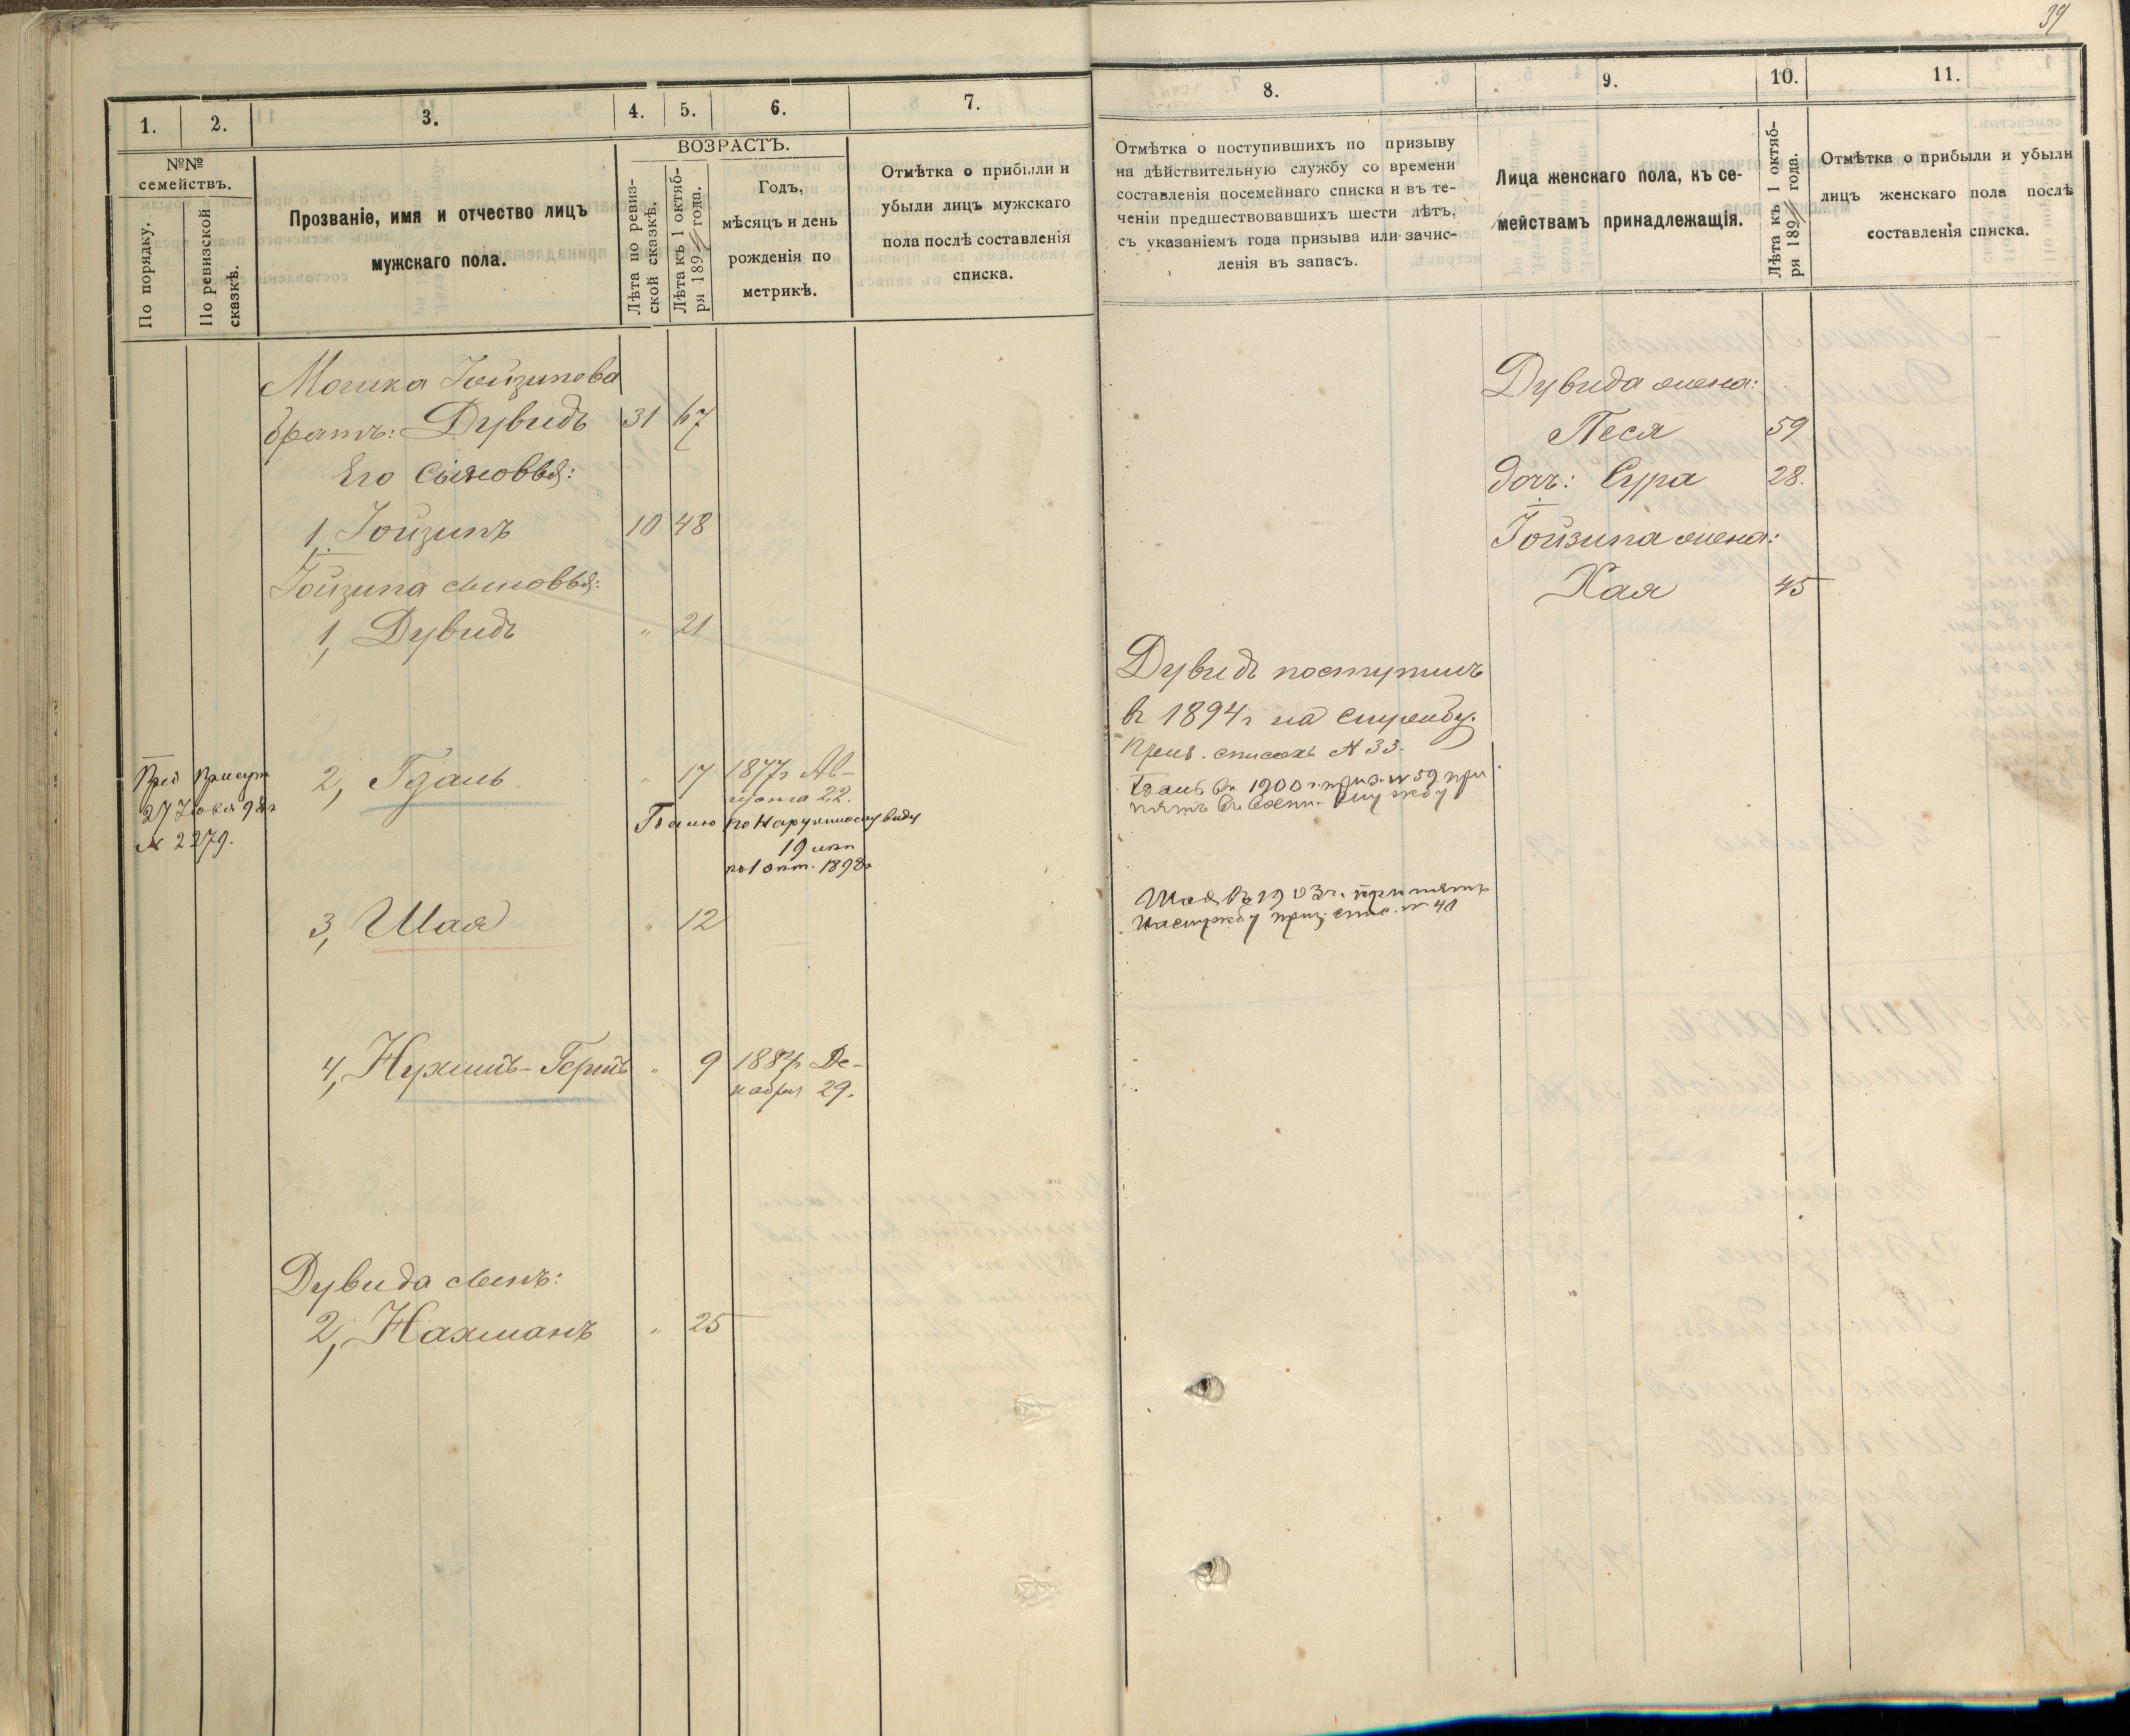 39
1. 2. 3. 4. 5. 6. 7.
№№
семействъ.
По порядку.
По ревизской
сказкѣ.
Прозваніе, имя и отчество лицъ
мужскаго пола.
ВОЗРАСТЪ.
Лѣта по ревиз-
ской сказкѣ.
Лѣта къ 1 октяб-
ря 189 года.
Годъ,
мѣсяцъ и день
рожденія по
метрикѣ.
Отмѣтка о прибыли и
убыли лицъ мужскаго
пола послѣ составленія
списка.
Мошка Іойзипова
братъ: Дувидъ 31 67
Его Сыновья:
1. Іойзипъ 10 48
Іойзипа сыновья:
1, Дувидъ " 21
Пред Присут
27 Іюня 98г
№ 2279.
2, Гдаль " 17 1877г Ав-
густа 22.
по наружному виду
19 лѣт
1898г
3, Шая " 12
4, Нухимъ- " 9 1884г Де-
кабря 29.
Дувида сынъ:
2, Нахманъ " 25
8. 9. 10. 11.
Отмѣтка о поступившихъ по призыву
на дѣйствительную службу со времени
составленія посемейнаго списка и въ те-
ченіи предшествовавшихъ шести лѣтъ,
съ указаніемъ года призыва или зачис-
ленія въ запасъ.
Лица женскаго пола, къ се-
мействамъ принадлежащія.
Лѣта къ 1 октяб-
ря 189 года.
Отмѣтка о прибыли и убыли
лицъ женскаго пола послѣ
составленія списка.
Дувида жена:
Песя 59
дочь: Сура 28.
Іойзипа жена:
Хая 45
Дувидъ поступилъ
в 1894г на службу.
Приз. списокъ № 33.
Гдаль въ 1900 г. приз. № 59 при
нятъ въ Воен. службу
Шая въ 1903 г. принятъ
на службу приз. спис. № 41